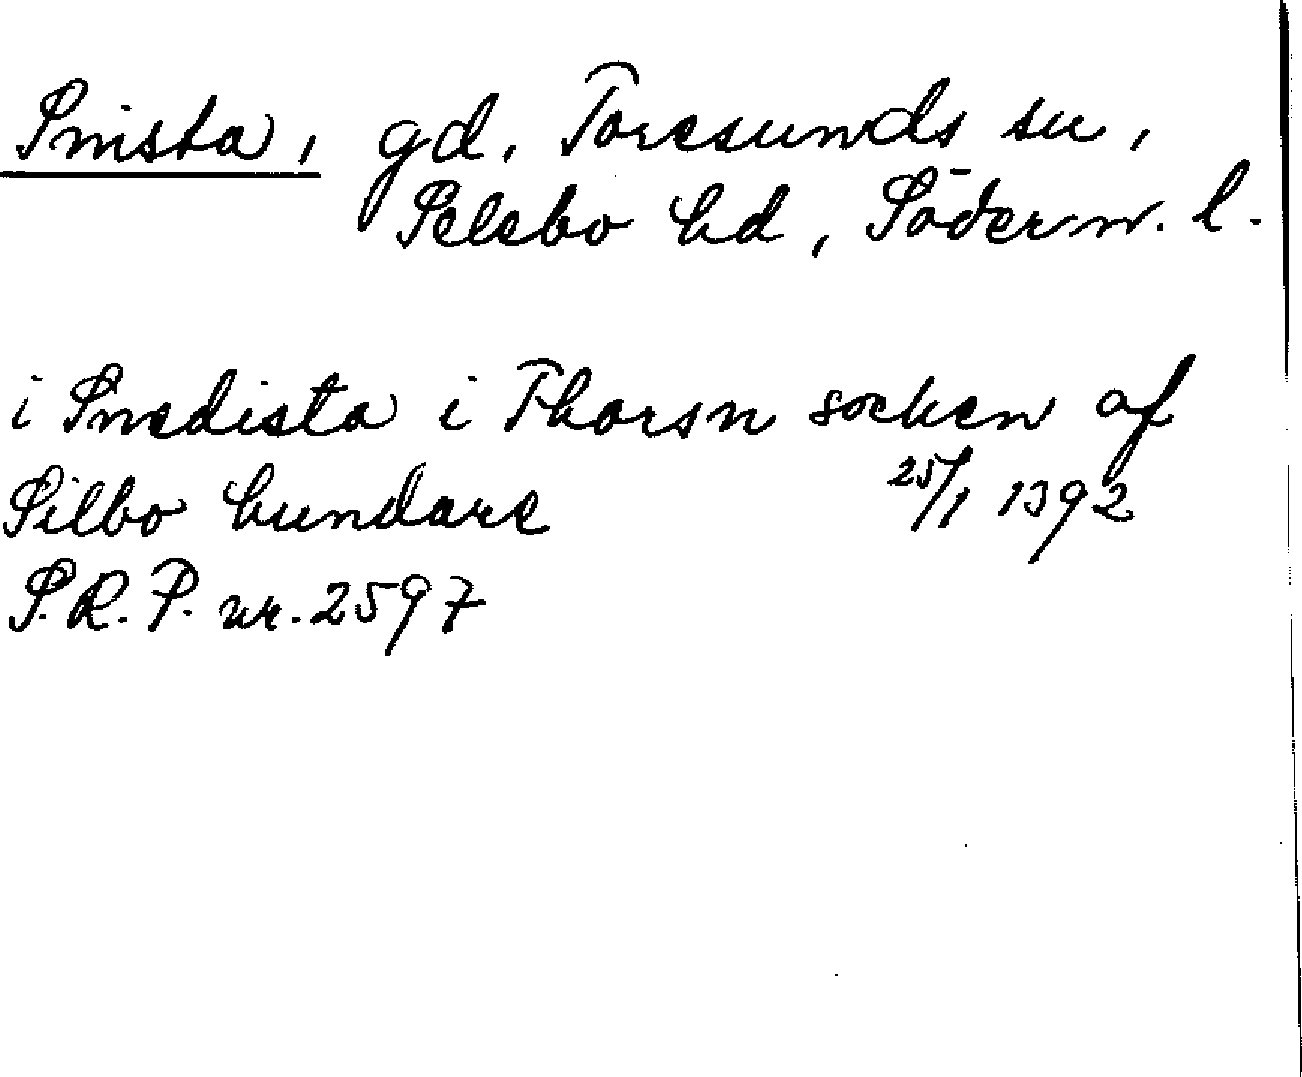 Snista, gd, Toresunds sn,
Selebo hd, Söderm. l.
i Snedista i Thorsn socken af
Silbo hundare 25/1 1392
S.R.P. nr. 2597